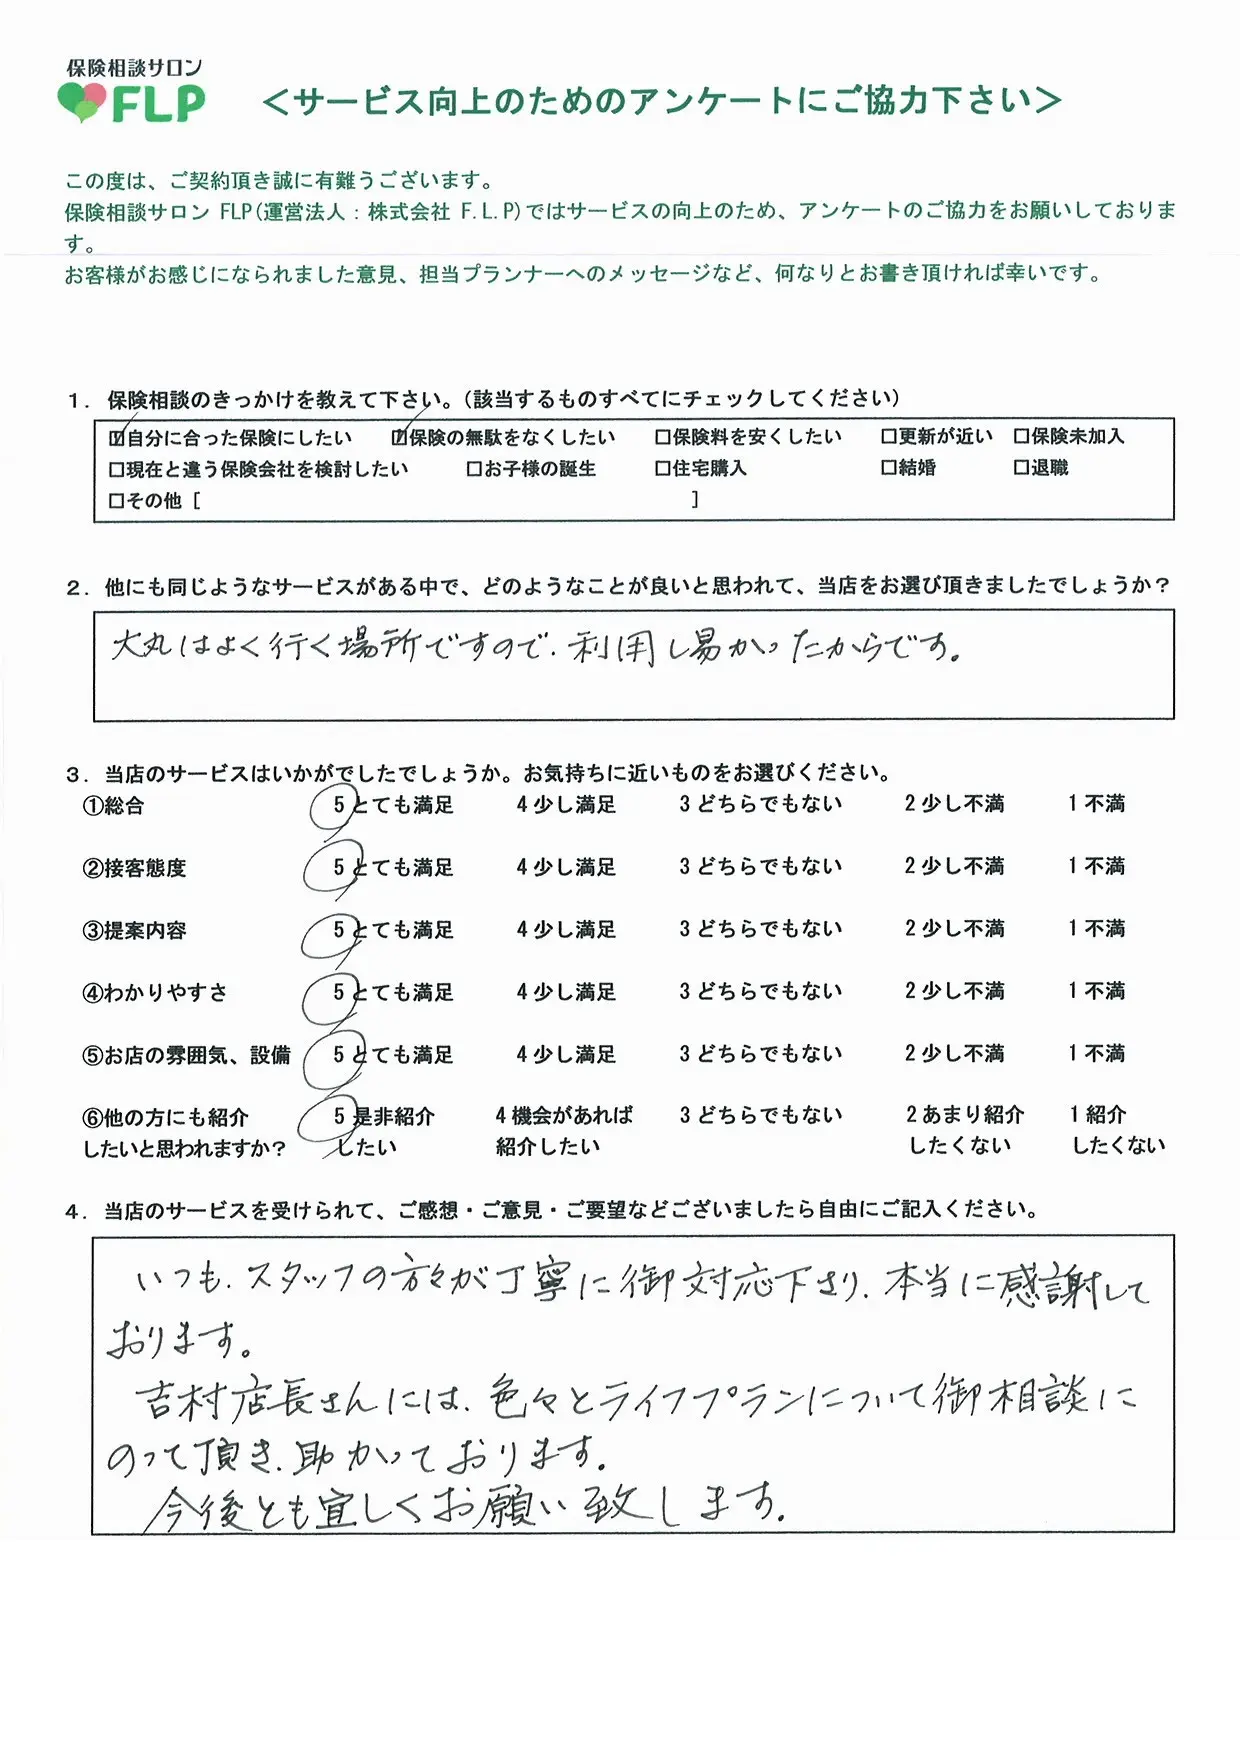 保険相談サロン
FLP
＜サービス向上のためのアンケートにご協力下さい＞
この度は、ご契約頂き誠に有難うございます。
保険相談サロン FLP(運営法人：株式会社 F.L.P)ではサービスの向上のため、アンケートのご協力をお願いしておりま
す。
お客様がお感じになられました意見、担当プランナーへのメッセージなど、何なりとお書き頂ければ幸いです。
1. 保険相談のきっかけを教えて下さい。（該当するものすべてにチェックしてください）
☑自分に合った保険にしたい ☑保険の無駄をなくしたい □保険料を安くしたい □更新が近い □保険未加入
□現在と違う保険会社を検討したい □お子様の誕生 □住宅購入 □結婚 □退職
□その他 [ ]
2. 他にも同じようなサービスがある中で、どのようなことが良いと思われて、当店をお選び頂きましたでしょうか？
大丸はよく行く場所ですので、利用し易かったからです。
3. 当店のサービスはいかがでしたでしょうか。お気持ちに近いものをお選びください。
①総合 5 とても満足 4 少し満足 3 どちらでもない 2 少し不満 1 不満
②接客態度 5 とても満足 4 少し満足 3 どちらでもない 2 少し不満 1 不満
③提案内容 5 とても満足 4 少し満足 3 どちらでもない 2 少し不満 1 不満
④わかりやすさ 5 とても満足 4 少し満足 3 どちらでもない 2 少し不満 1 不満
⑤お店の雰囲気、設備 5 とても満足 4 少し満足 3 どちらでもない 2 少し不満 1 不満
⑥他の方にも紹介 5 是非紹介 4 機会があれば 3 どちらでもない 2 あまり紹介 1 紹介
したいと思われますか？ したい 紹介したい したくない したくない
4. 当店のサービスを受けられて、ご感想・ご意見・ご要望などございましたら自由にご記入ください。
いつも、スタッフの方々が丁寧に御対応下さり、本当に感謝して
おります。
吉村店長さんには、色々とライフプランについて御相談に
のって頂き、助かっております。
今後とも宜しくお願い致します。